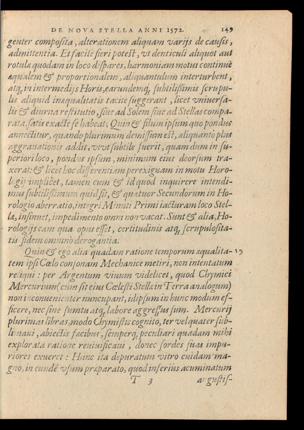 DE NOVA STELLA ANNI 1572. 149
genter composita, alterationem aliquam varijs de causis,
admittentia. Et facilè fieri potest, vt denticuli aliquot aut
rotula quædam in loco dispares, harmoniam motus continuè
æqualem & proportionalem, aliquantulum interturbent,
atq, in intermedijs Horis, earundemq, subtilissimis scrupu-
lis aliquid inæqualitatis tacitè suggerant, licet vniuersa-
lis & diurna restitutio, siue ad Solem siue ad Stellas compa-
rata, satis exactè se habeat. Quin & filum ipsum quo pondus
annectitur, quando plurimum demissum est, aliquanto plus
aggrauationis addit, vt vt subtile fuerit, quam dum in su-
periori loco, pondus ipsum, minimum eius deorsum tra-
xerat: & licet hoc differentiam perexiguam in motu Horo-
logij implicet, tamen cum & id quod inquirere intendi-
mus subtilissimum quid sit, & quatuor Secundorum in Ho-
rologio aberratio, integri Minuti Primi iacturam loco Stel-
læ, insinuet, impedimento omni non vacat. Sunt & alia, Ho-
rologijs cum qua opus esset, certitudinis atq, scrupulosita-
tis fidem omnino derogantia.
Quin & ego alia quadam ratione temporum æqualita- 15
tem ipsi Cœlo consonam Mechanicè metiri, non intentatum
reliqui: per Argentum viuum videlicet, quod Chymici
Mercurium (cum sit eius Cœlestis Stellæ in Terra analogum)
non inconuenienter nuncupant, id ipsum in hunc modum ef-
ficere, nec sine sumtu atq, labore aggressus sum. Mercurij
plurimas libras, modo Chymistis cognito, ter vel quater sub-
limaui, abiectis fæcibus, semperq, peculiari quadam mihi
explorata ratione reuiuificaui, donec sordes suas impu-
riores exuerct: Hunc ita depuratum vitro cuidam ma-
gno, in eundē vsum præparato, quod inferius acuminatum
T 3 angustis-